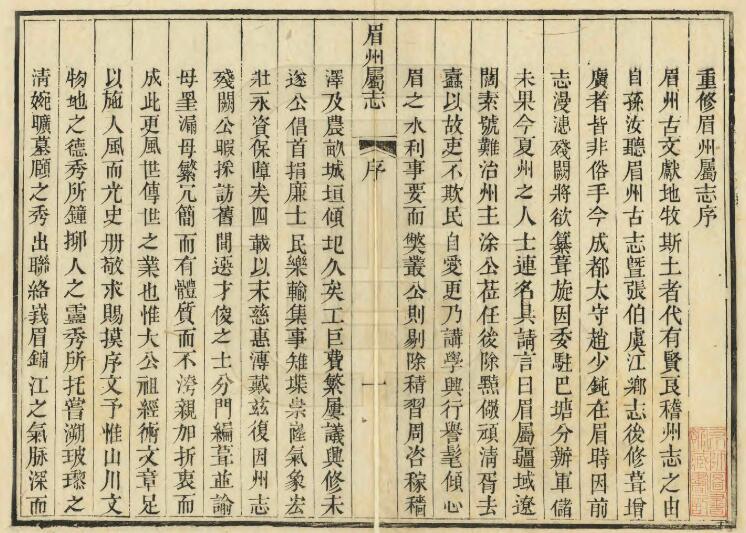 重修眉州屬志序
眉州古文獻地牧斯土者代有賢良稽州志之由
自孫汝聽眉州古志暨張伯虞江鄉志後修葺增
廣者皆非俗手今成都太守趙少鈍在眉時因前
志漫漶殘闕將欲纂葺旋因委駐巴塘分辦軍儲
未果今夏州之人士連名具請言曰眉屬疆域遼
闊素號難治州主涂公蒞任後除黠儆頑清胥去
蠹以故吏不欺民自愛更乃講學興行譽髦傾心
眉之水利事要而獘叢公則剔除積習周咨稼穡
眉州屬志
序
一
澤及農畝城垣傾圮久矣工巨費繁屢議興修未
遂公倡首捐廉士民樂輸集事雉堞崇窿氣象宏
壯永資保障矣四載以末慈惠溥戴玆復因州志
殘闕公暇採訪舊聞選才俊之士分門編葺並諭
毋罣漏毋繁冗簡而有體質而不滂親加折衷而
成此更風世傳世之業也惟大公祖經術文章足
以施人風而光史册敬求賜摸序文予惟山川文
物地之德秀所鐘抑人之靈秀所托嘗溯玻瓈之
清婉曠墓頤之秀出聯絡峩眉錦江之氣脉深而